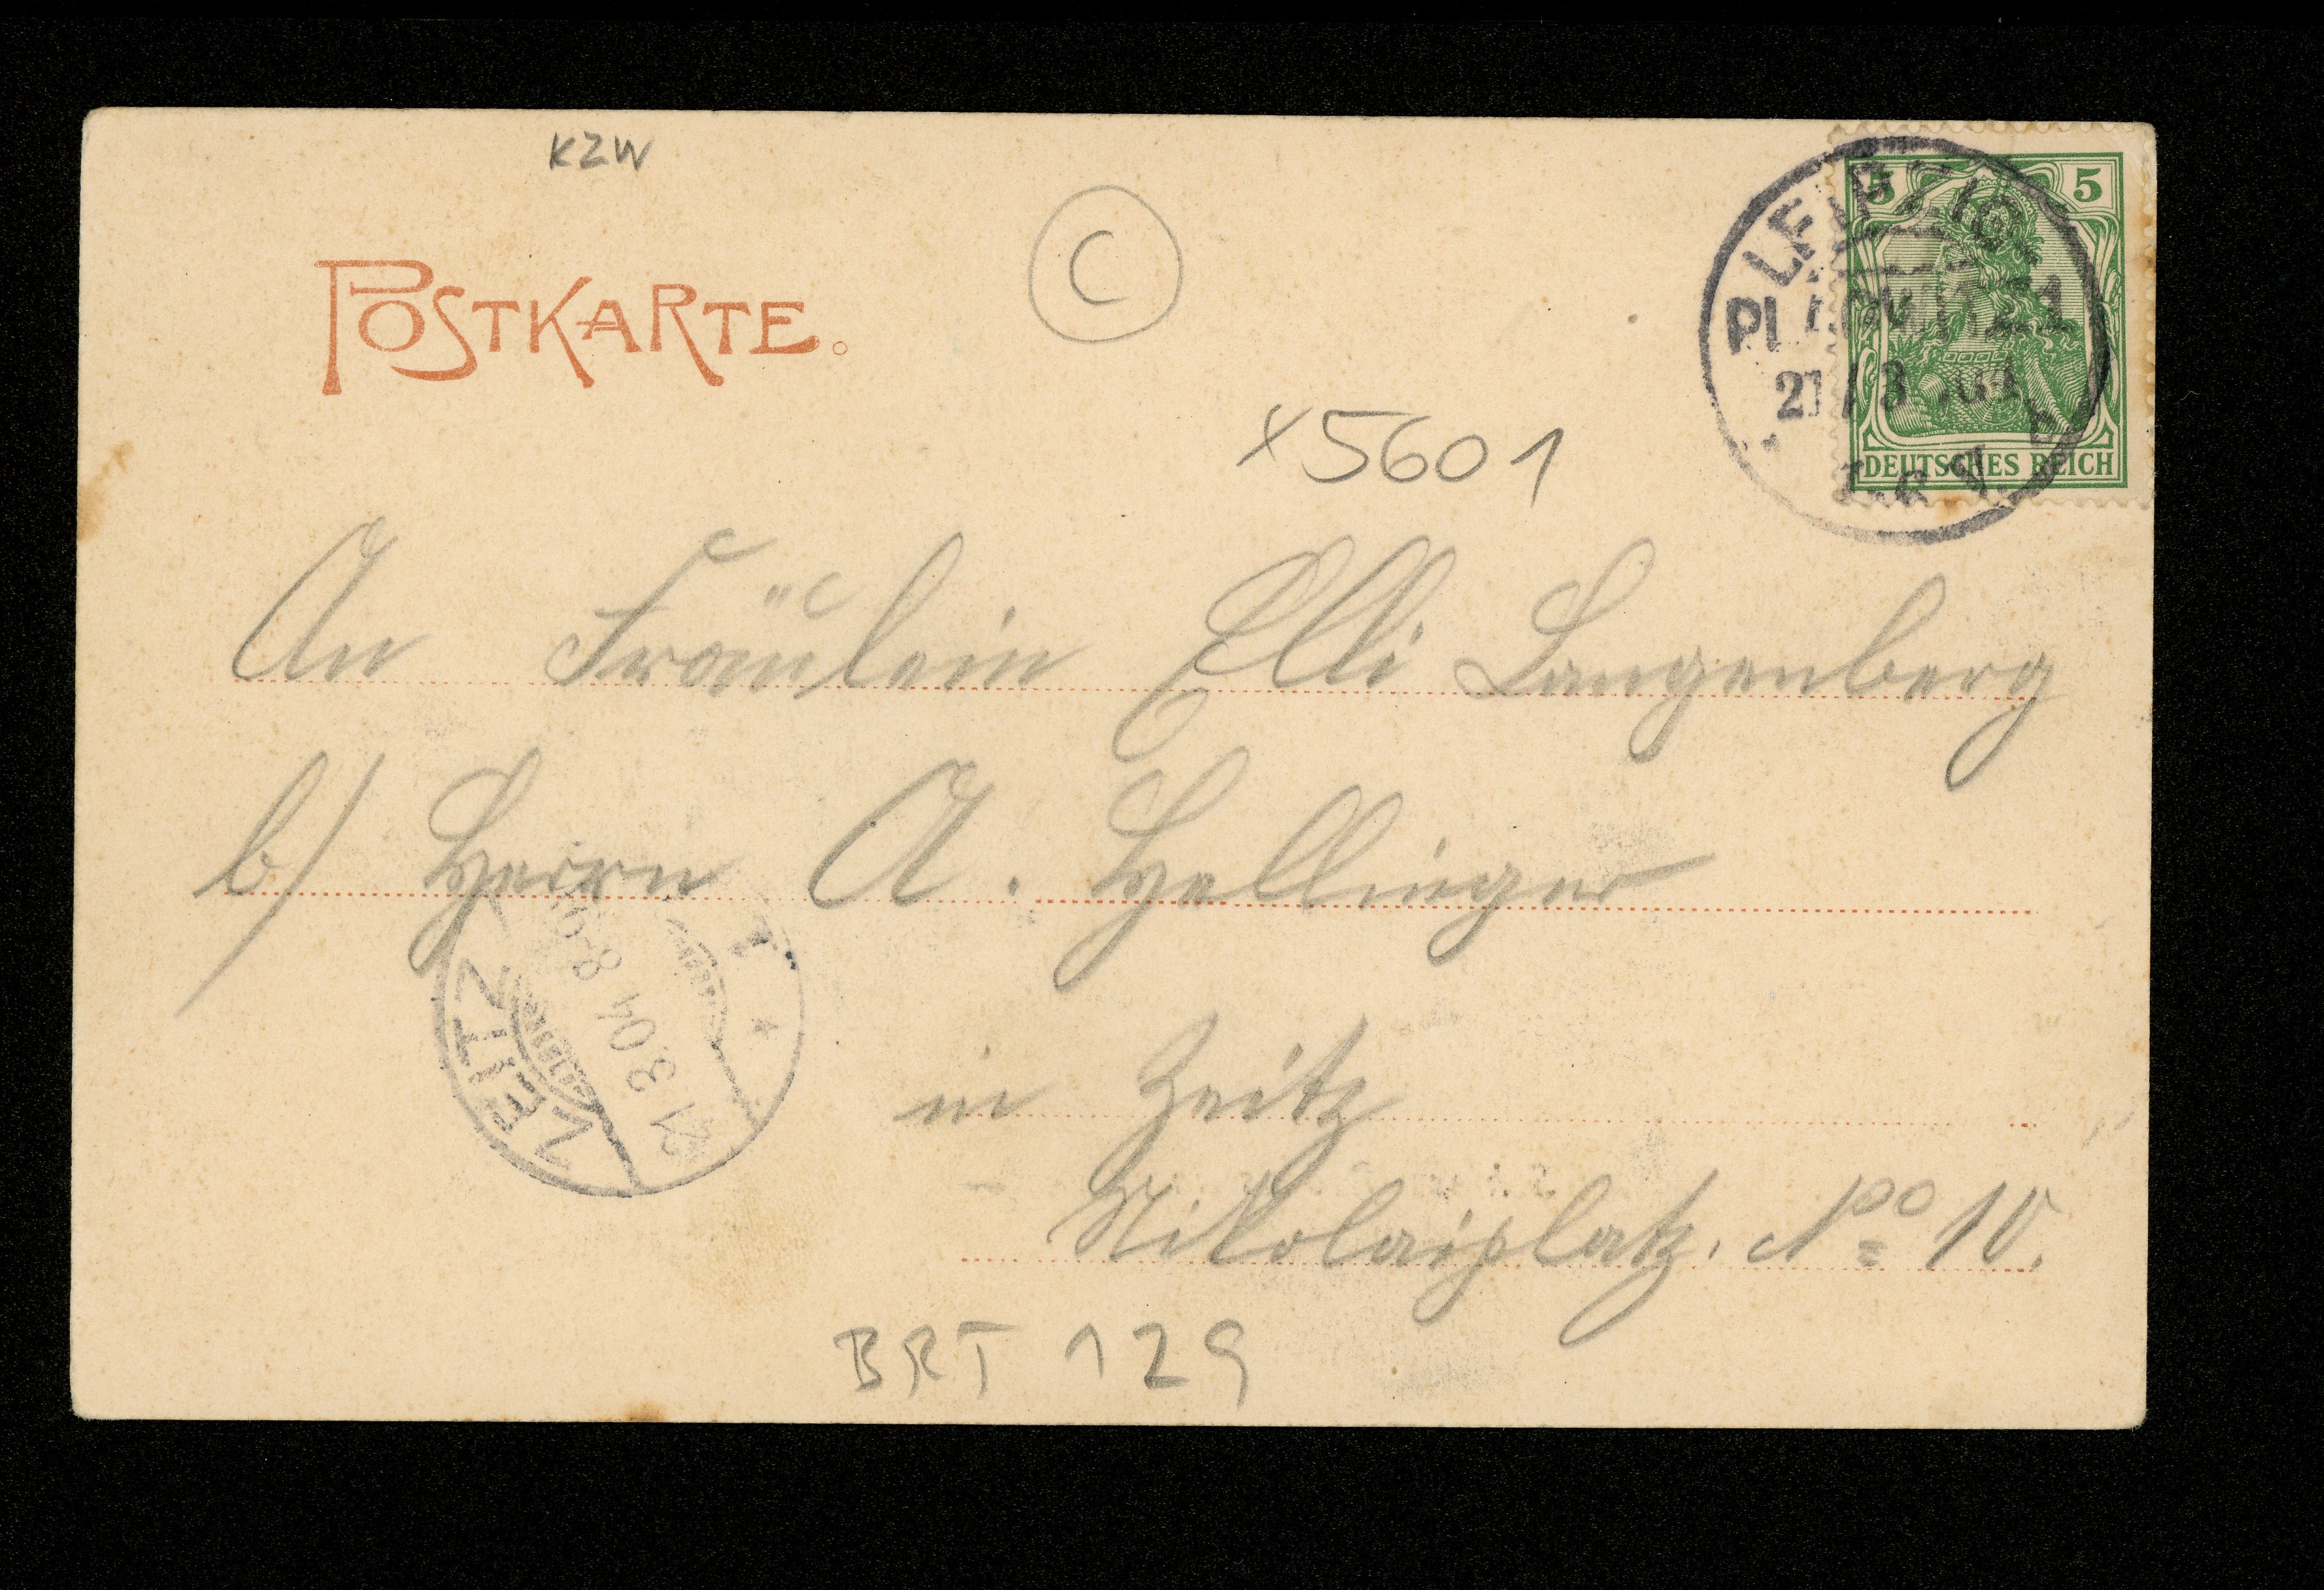 KZW
C
POSTKARTE.
LEIPZIG
PLAGWITZ 1
21/3 04
5 5
DEUTSCHES REICH
x5601
An Fräulein Elli Langenberg
b/ Herrn A. Hellinger
in Zeitz
Nikolaiplatz. No 10.
ZEITZ
21 3 04 8-9
BRT 129